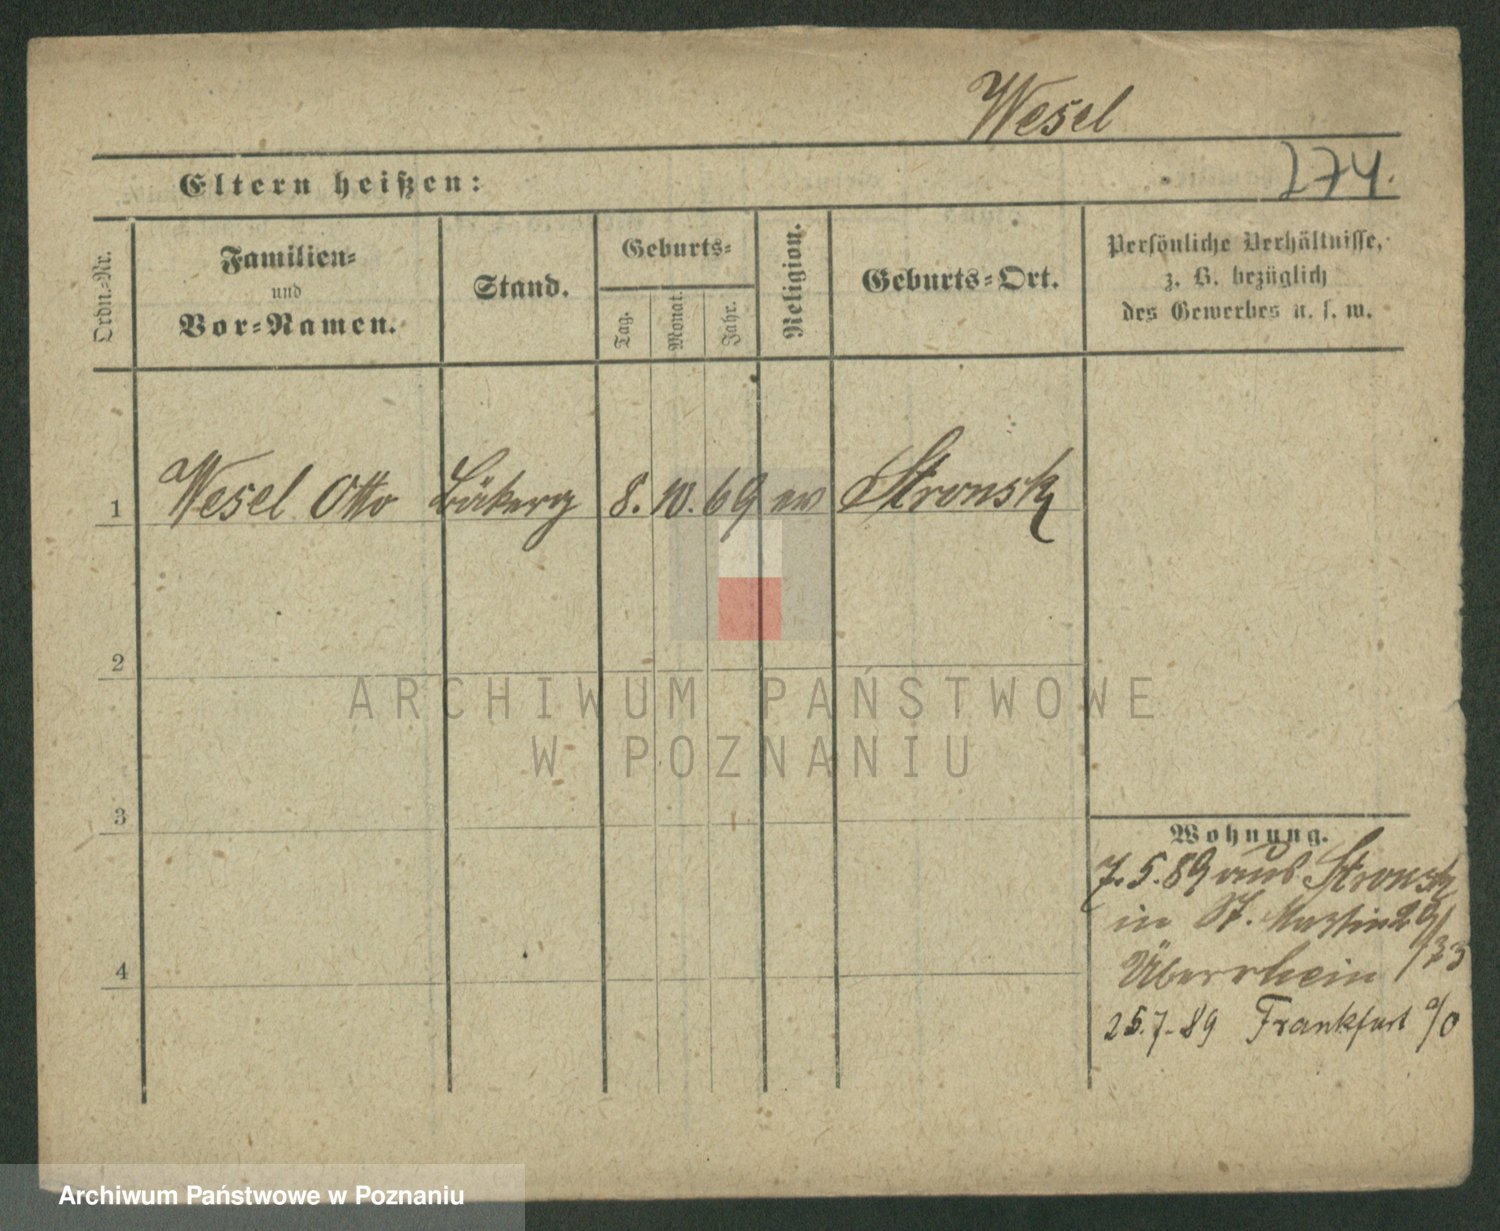 Wesel
274.
Eltern heißen:
Ordn.-Nr.
Familien-
und
Vor-Namen.
Stand.
Geburts-
Tag.
Monat.
Jahr.
Religion.
Geburts-Ort.
Persönliche Verhältnisse,
z. B. bezüglich
des Gewerbes u. s. w.
1 Wesel Otto 8. 10. 69 ev Stronsk
2
3
4
ARCHIWUM PAŃSTWOWE
W POZNANIU
Wohnung.
7.5.89 aus Stronsk
in St. Martin 29/
Überrhein /33
25.7.89 Frankfurt a/O
Archiwum Państwowe w Poznaniu